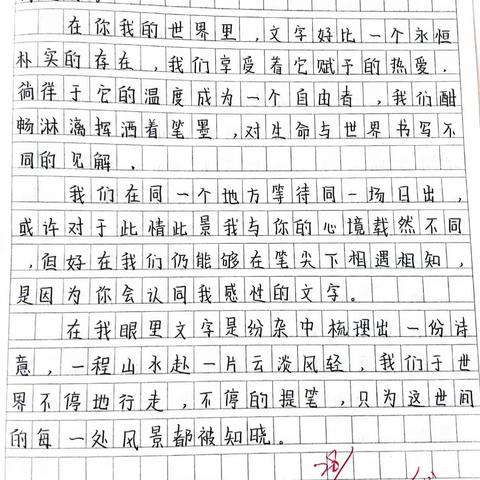 在你我的世界里,文字好比一个永恒
朴实的存在,我们享受着它赋予的热爱.
徜徉于它的温度成为一个自由者,我们酣
畅淋漓挥洒着笔墨,对生命与世界书写不
同的见解.
我们在同一个地方等待同一场日出,
或许对于此情此景我与你的心境截然不同
,但好在我们仍能够在笔尖下相遇相知,
是因为你会认同我感性的文字。
在我眼里文字是纷杂中梳理出一份诗
意,一程山水赴一片云淡风轻,我们于世
界不停地行走,不停的提笔,只为这世间
的每一处风景都被知晓。